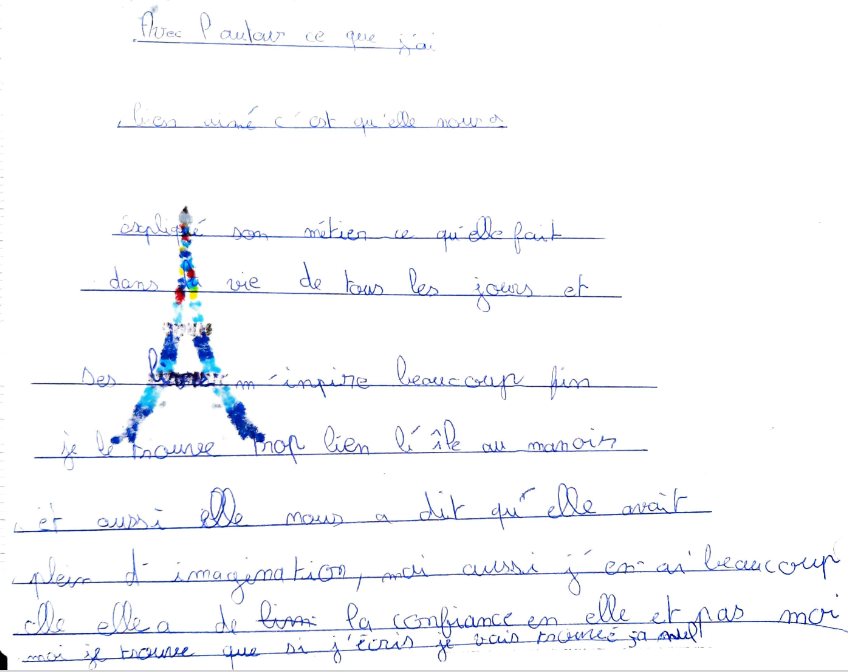 Avec l'auteur ce que j'ai
bien aimé c'est qu'elle nous a
éxpliqué son métier ce qu'elle fait
dans la vie de tous les jours et
ses livre m'inpire beaucoup fin
je le trouve trop bien l'île au manoir
et aussi elle nous a dit qu'elle avait
plein d'imagination, moi aussi j'en ai beaucoup
elle elle a de la confiance en elle et pas moi
moi je trouve que si j'écris je vais trouvé sa nul